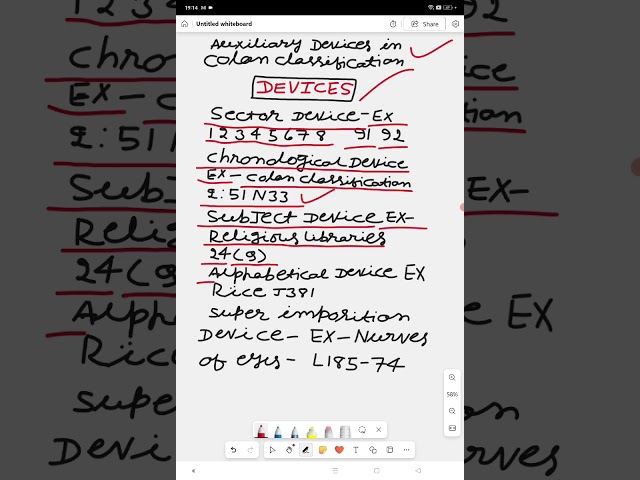 19:14
Untitled whiteboard
Share
Auxiliary Devices in
Colon classification
DEVICES
Sector Device-Ex
1 2 3 4 5 6 7 8 91 92
Chronological Device
Ex- Colon classification
2:51N33
Subject Device Ex-
Religious libraries
24(g)
Alphabetical Device EX
Rice J381
super imposition
Device- EX-Nurves
of eyes- L185-74
58%